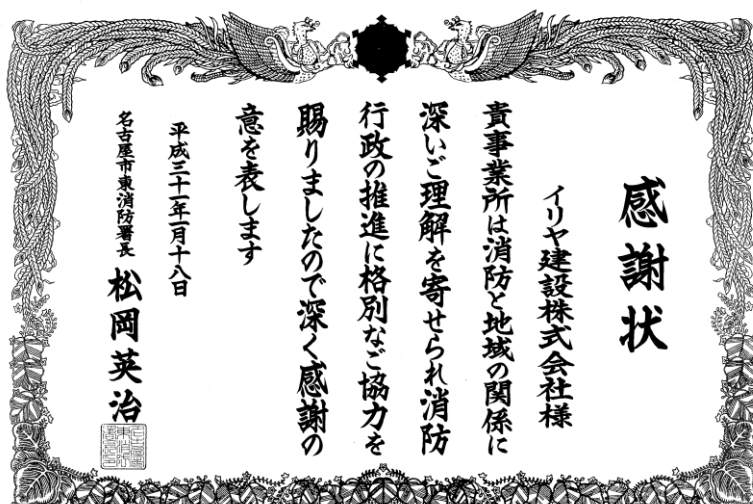 感謝状
イリヤ建設株式会社様
貴事業所は消防と地域の関係に
深いご理解を寄せられ消防
行政の推進に格別なご協力を
賜りましたので深く感謝の
意を表します
平成三十一年一月十八日
名古屋市東消防署長
松岡英治